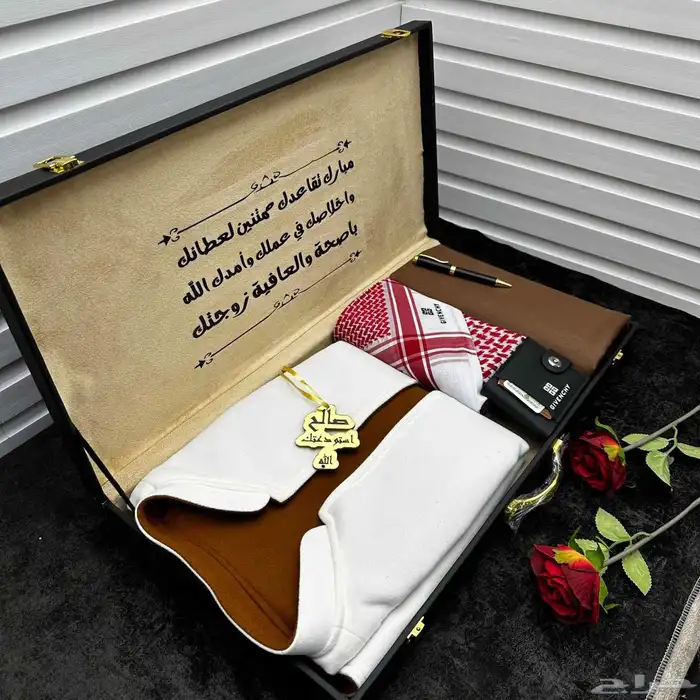 مبارك تقاعدك ممتنين لعطائك
واخلاصك في عملك وأمدك الله
باصحة والعافية زوجتك
صالح
استودعتك
الله
GIVENCHY
GIVENCHY
حراج